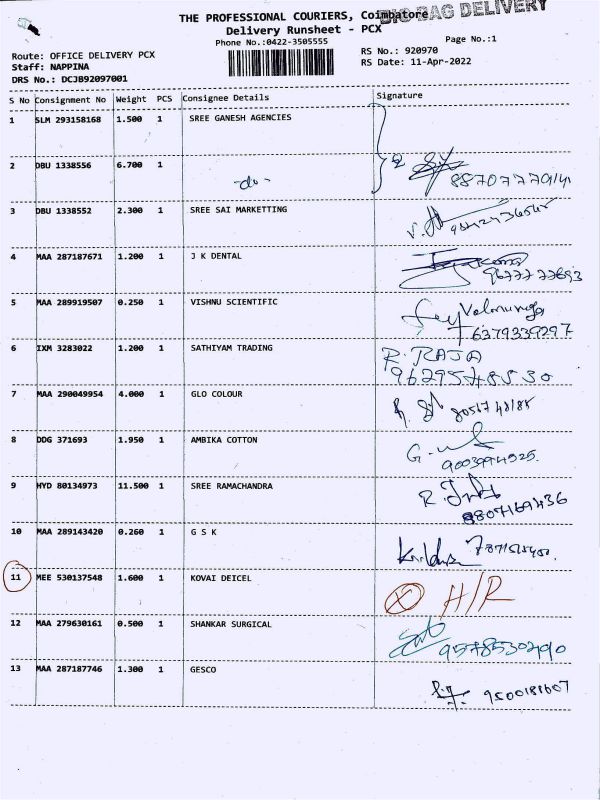 BIG BAG DELIVERY
THE PROFESSIONAL COURIERS, Coimbatore
Delivery Runsheet - PCX
Phone No.:0422-3505555
Page No.:1
Route: OFFICE DELIVERY PCX
Staff: NAPPINA
DRS No.: DCJB92097001
RS No.: 920970
RS Date: 11-Apr-2022
S No Consignment No Weight PCS Consignee Details Signature
1 SLM 293158168 1.500 1 SREE GANESH AGENCIES
2 DBU 1338556 6.700 1 -do-
3 DBU 1338552 2.300 1 SREE SAI MARKETTING
4 MAA 287187671 1.200 1 J K DENTAL 9677777693
5 MAA 289919507 0.250 1 VISHNU SCIENTIFIC
6379339297
6 IXM 3283022 1.200 1 SATHIYAM TRADING R. RAJA
9629548530
7 MAA 290049954 4.000 1 GLO COLOUR
8 DDG 371693 1.950 1 AMBIKA COTTON
9003994525.
9 HYD 80134973 11.500 1 SREE RAMACHANDRA
8807169436
10 MAA 289143420 0.260 1 G S K
11 MEE 530137548 1.600 1 KOVAI DEICEL X H/R
12 MAA 279630161 0.500 1 SHANKAR SURGICAL
9578530290
13 MAA 287187746 1.300 1 GESCO
9500181607